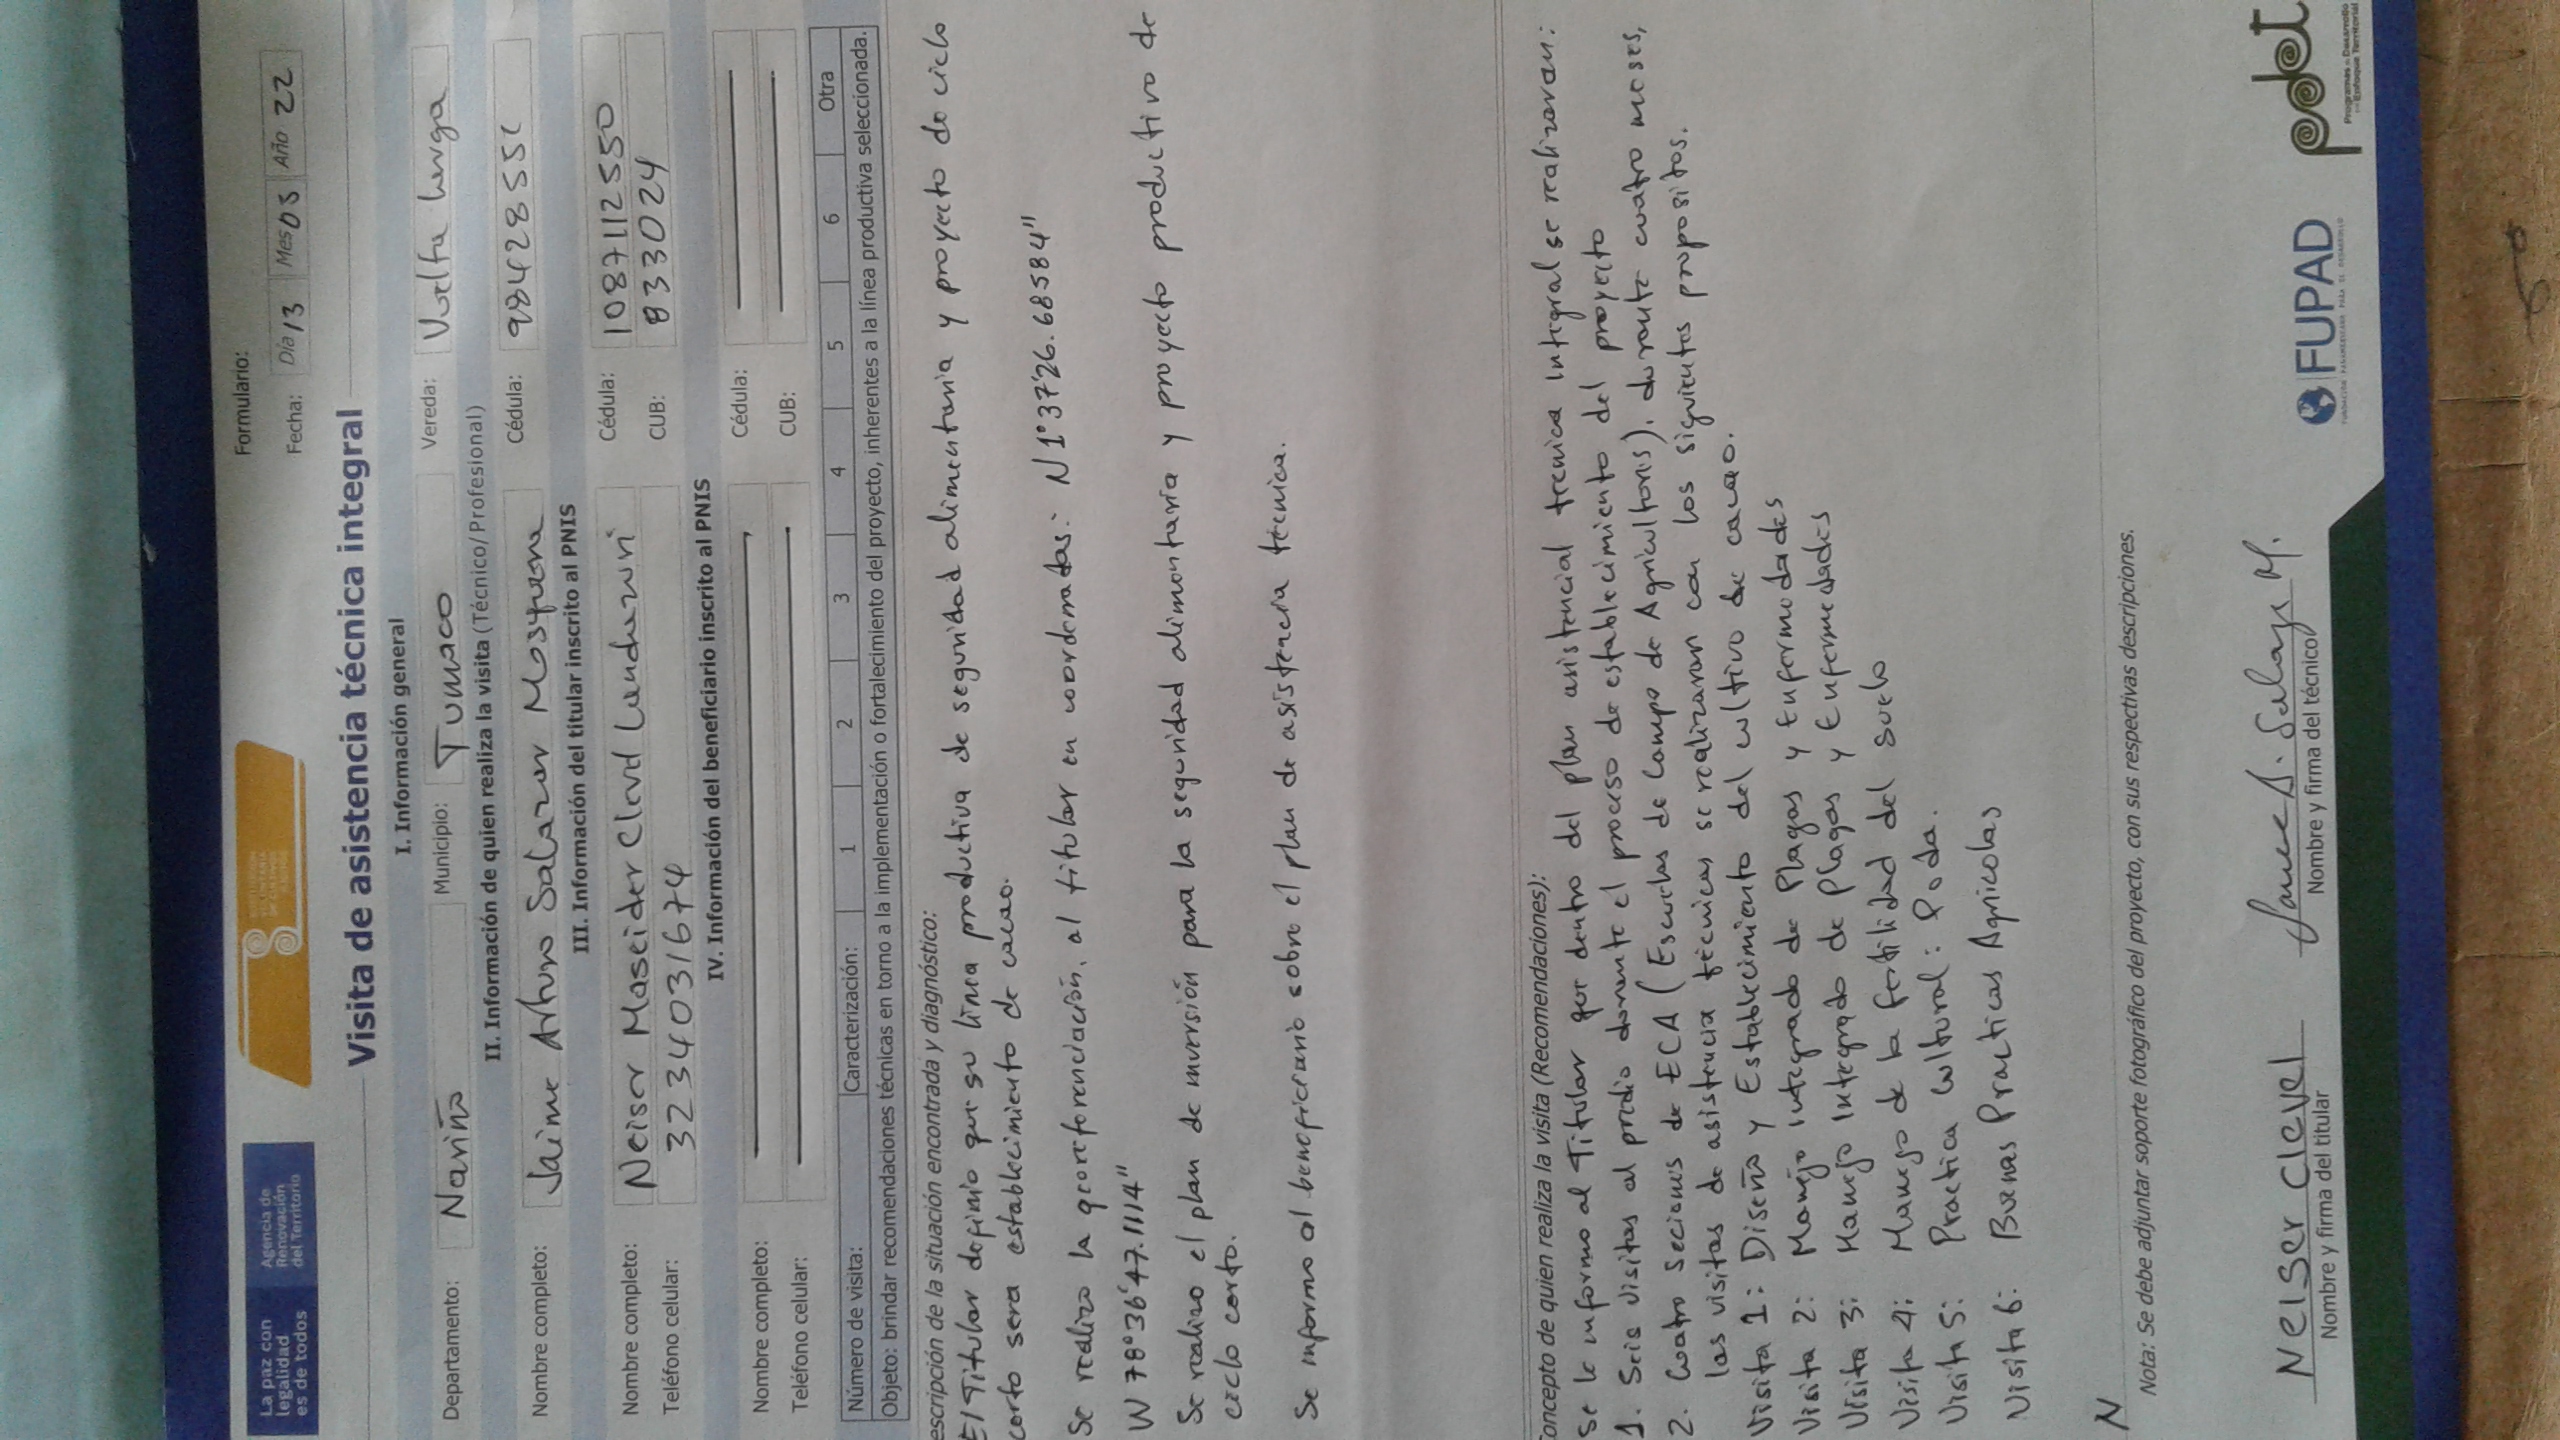 La paz con
legalidad
es de todos
Agencia de
Renovación
del Territorio
Formulario:
Fecha: Día 13 Mes 05 Año 22
Visita de asistencia técnica integral
I. Información general
Departamento: Nariño Municipio: Tumaco Vereda: Vuelta larga
II. Información de quien realiza la visita (Técnico/Profesional)
Nombre completo: Jaime Arturo Salazar Mosquera Cédula:
III. Información del titular inscrito al PNIS
Nombre completo: Neiser Maseider Clevel Cédula: 1087112550
Teléfono celular: 3234031674 CUB: 833024
IV. Información del beneficiario inscrito al PNIS
Nombre completo: Cédula:
Teléfono celular: CUB:
Número de visita: Caracterización: 1 2 3 4 5 6 Otra
Objeto: brindar recomendaciones técnicas en torno a la implementación o fortalecimiento del proyecto, inherentes a la línea productiva seleccionada.
escripción de la situación encontrada y diagnóstico:
El Titular definio que su línea productiva de seguridad alimentaria y proyecto de ciclo
corto sera establecimiento de cacao.
Se realizo la georeferenciación, al titular en coordenadas: N 1°37'26.68584"
W 78°36'47.1114"
Se realizo el plan de inversión para la seguridad alimentaria y proyecto productivo de
ciclo corto.
Se informo al beneficiario sobre el plan de asistencia técnica.
oncepto de quien realiza la visita (Recomendaciones):
Se le informo al Titular que dentro del plan asistencial tecnica integral se realizaran:
1. Seis visitas al predio durante el proceso de establecimiento del proyecto
2. Cuatro seciones de ECA (Escuelas de Campo de Agricultores), durante cuatro meses,
las visitas de asistencia técnicas se realizaran con los siguientes propositos.
Visita 1: Diseño y Establecimiento del cultivo de cacao.
Visita 2: Manejo integrado de Plagas y enfermedades
Visita 3: Manejo Integrado de plagas y Enfermedades
Visita 4: Manejo de la fertilidad del suelo
Visita 5: Practica Cultural: Poda.
Visita 6: Buenas Practicas Agricolas
N
Nota: Se debe adjuntar soporte fotográfico del proyecto, con sus respectivas descripciones.
Neiser Clevel
Nombre y firma del titular
Jaime A. Salazar M.
Nombre y firma del técnico
FUPAD
FUNDACIÓN PANAMERICANA PARA EL DESARROLLO
pdet
Programas de Desarrollo
con Enfoque Territorial